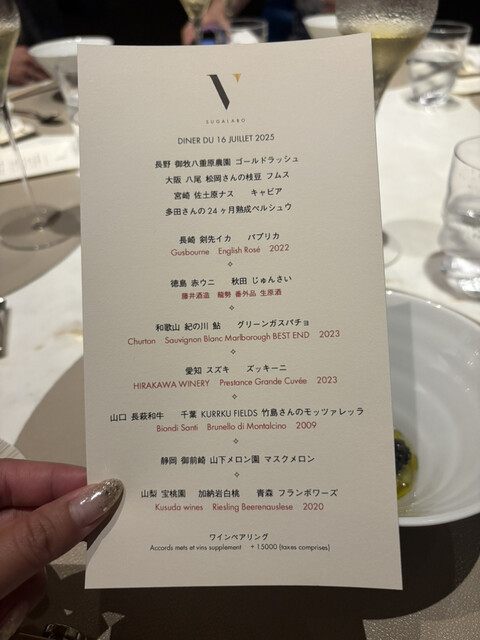 SUGALABO
DINER DU 16 JUILLET 2025
長野 御牧八重原農園 ゴールドラッシュ
大阪 八尾 松岡さんの枝豆 フムス
宮崎 佐土原ナス キャビア
多田さんの24ヶ月熟成ペルシュウ
長崎 剣先イカ パプリカ
Gusbourne English Rosé 2022
徳島 赤ウニ 秋田 じゅんさい
藤井酒造 龍勢 番外品 生原酒
和歌山 紀の川 鮎 グリーンガスパチョ
Churton Sauvignon Blanc Marlborough BEST END 2023
愛知 スズキ ズッキーニ
HIRAKAWA WINERY Prestance Grande Cuvée 2023
山口 長萩和牛 千葉 KURRKU FIELDS 竹島さんのモッツァレッラ
Biondi Santi Brunello di Montalcino 2009
静岡 御前崎 山下メロン園 マスクメロン
山梨 宝桃園 加納岩白桃 青森 フランボワーズ
Kusuda wines Riesling Beerenauslese 2020
ワインペアリング
Accords mets et vins supplement +15000 (taxes comprises)